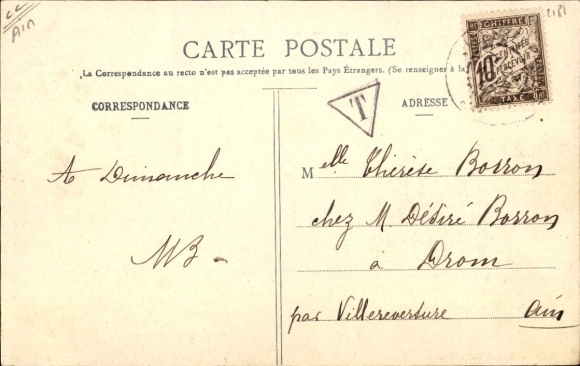 cc
Ain
2181
CARTE POSTALE
La Correspondance au recto n'est pas acceptée par tous les Pays Étrangers. (Se renseigner à la
CORRESPONDANCE
ADRESSE
CHIFFRE
10
TAXE
T
A Dimanche
MB
Melle Thérèse Borron
chez M. Désiré Borron
à Drom
par Villereversure Ain